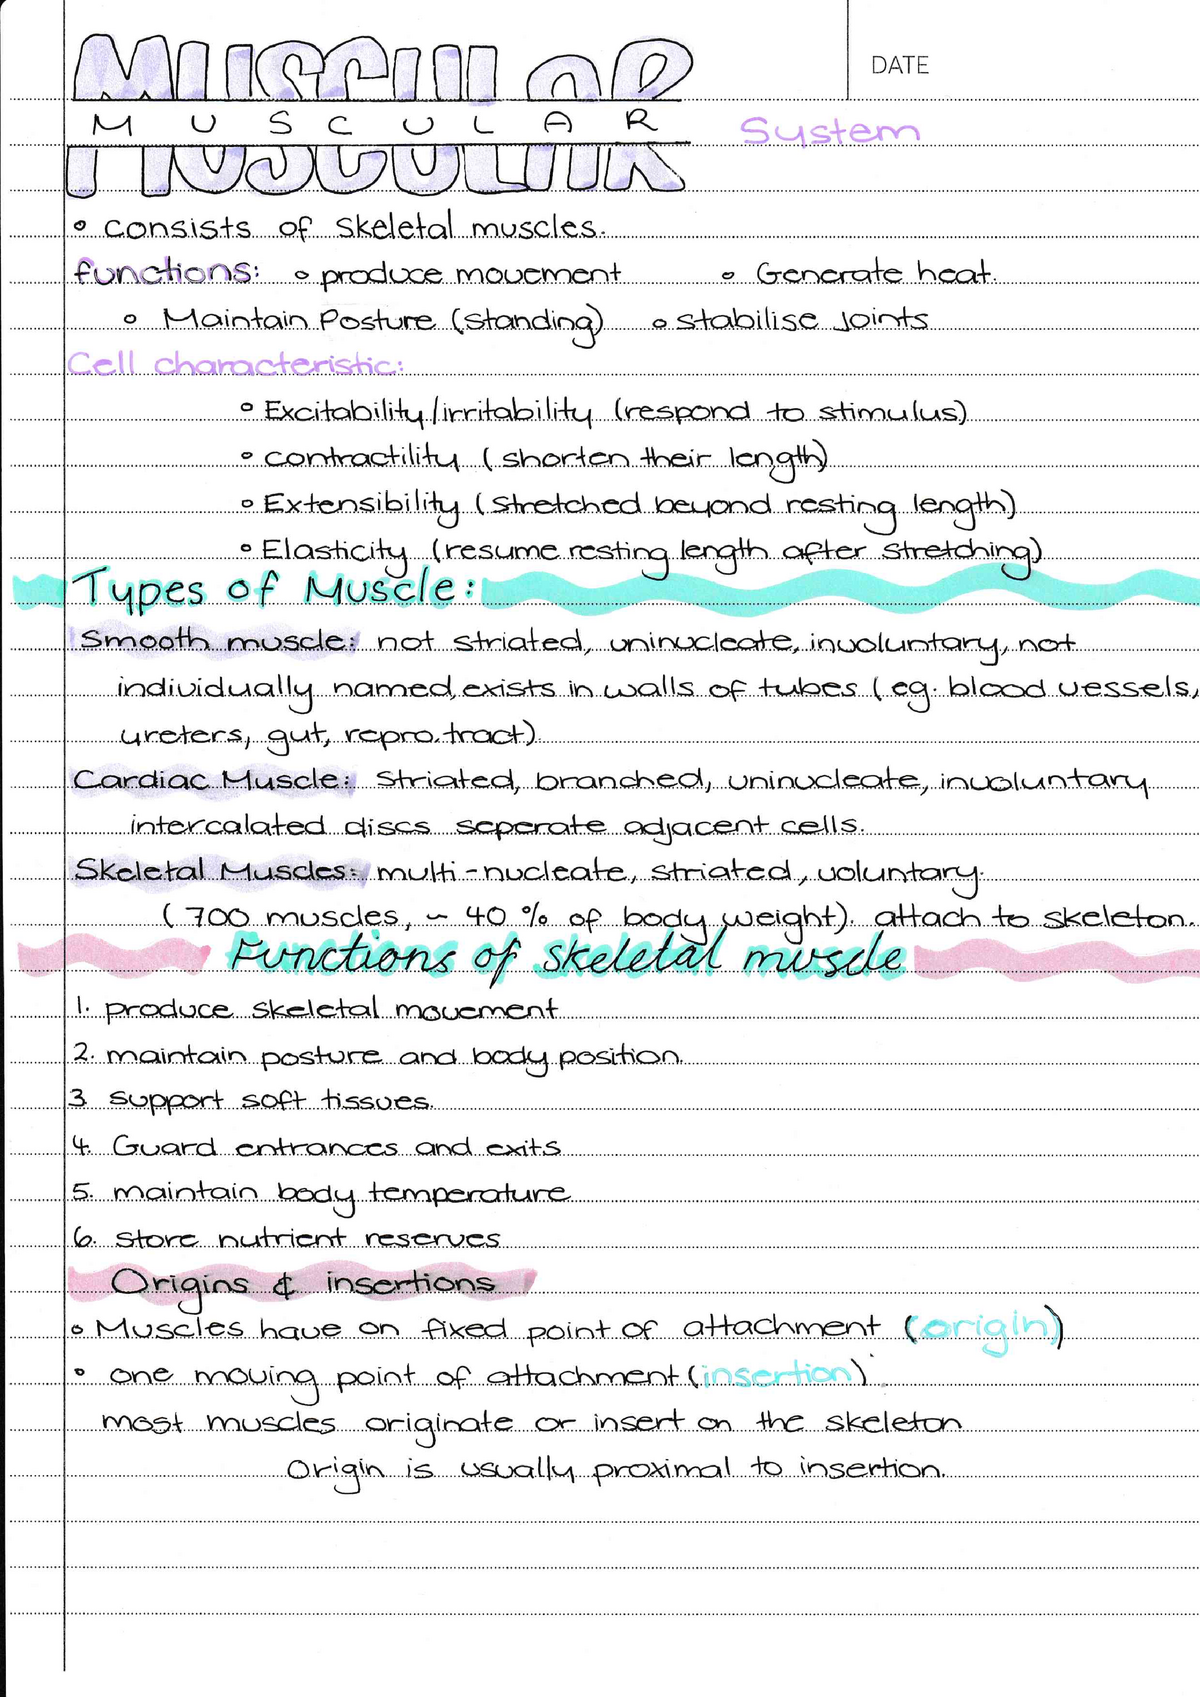 DATE
MUSCULAR
MUSCULAR System
◦ consists of skeletal muscles.
functions: ◦ produce movement ◦ Generate heat.
◦ Maintain Posture (standing) ◦ stabilise Joints
Cell characteristic:
◦ Excitability/irritability (respond to stimulus)
◦ contractility (shorten their length)
◦ Extensibility (stretched beyond resting length)
◦ Elasticity (resume resting length after stretching)
Types of Muscle:
Smooth muscle: not striated, uninucleate, involuntary, not
individually named, exists in walls of tubes (eg. blood vessels,
ureters, gut, repro.tract).
Cardiac Muscle: Striated, branched, uninucleate, involuntary
intercalated discs seperate adjacent cells.
Skeletal Muscles: multi-nucleate, striated, voluntary.
(700 muscles, ~ 40 % of body weight). attach to skeleton.
Functions of skeletal muscle
1. produce skeletal movement
2. maintain posture and body position.
3 support soft tissues.
4. Guard entrances and exits
5. maintain body temperature
6. store nutrient reserves
Origins & insertions
◦ Muscles have on fixed point of attachment (origin)
◦ one moving point of attachment (insertion)
most muscles originate or insert on the skeleton
Origin is usually proximal to insertion.